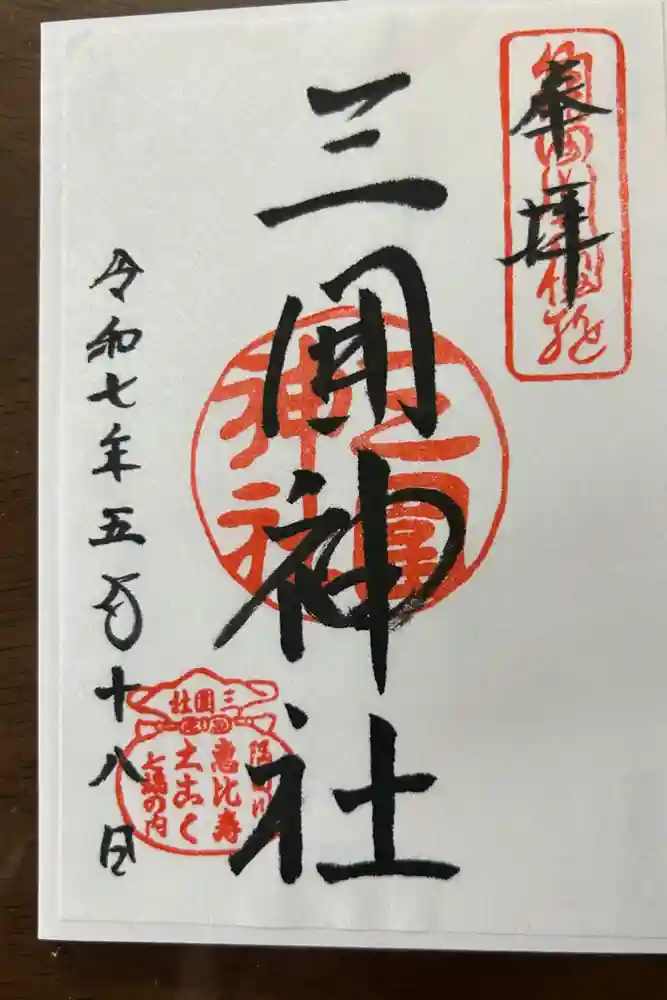 奉拝
三囲神社
三圍神社
令和七年五月十八日
三圍社
隅田川
恵比寿
大こく
七福の内